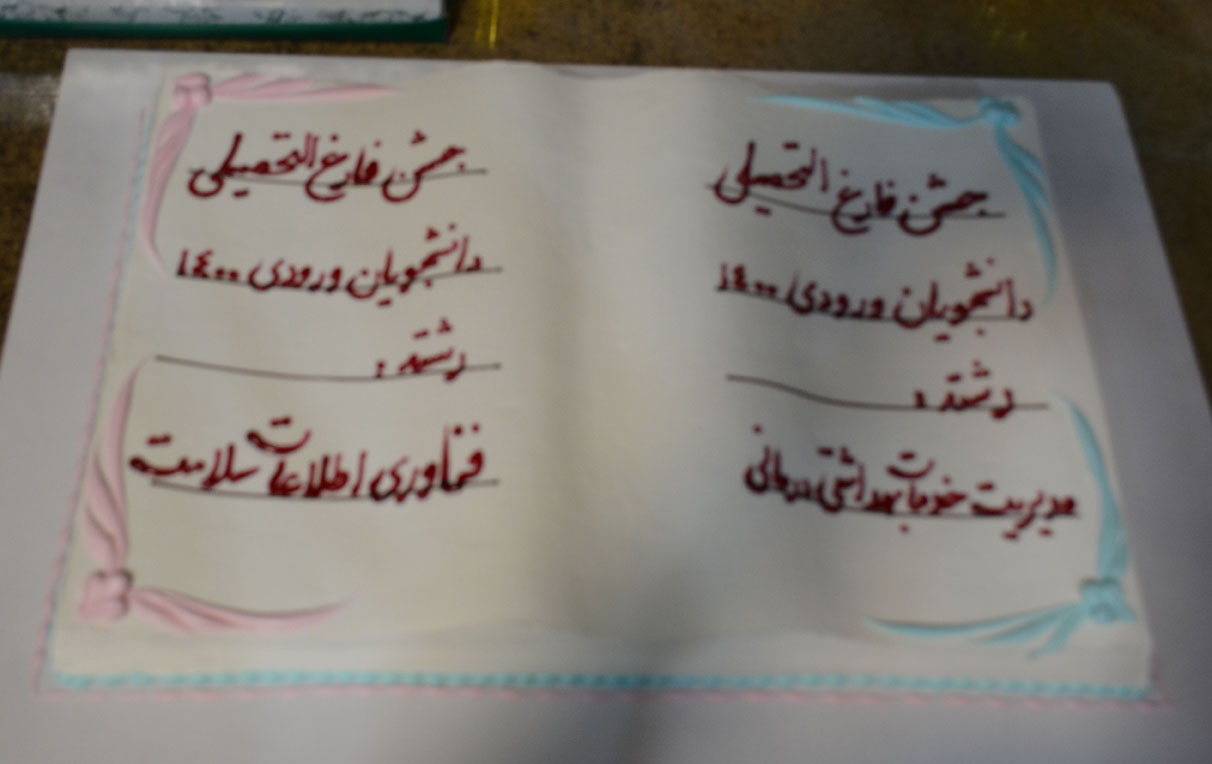 جشن فارغ التحصیلی
دانشجویان ورودی ۱۴۰۰
رشته :
مدیریت خدمات بهداشتی درمانی
جشن فارغ التحصیلی
دانشجویان ورودی ۱۴۰۰
رشته :
فناوری اطلاعات سلامت